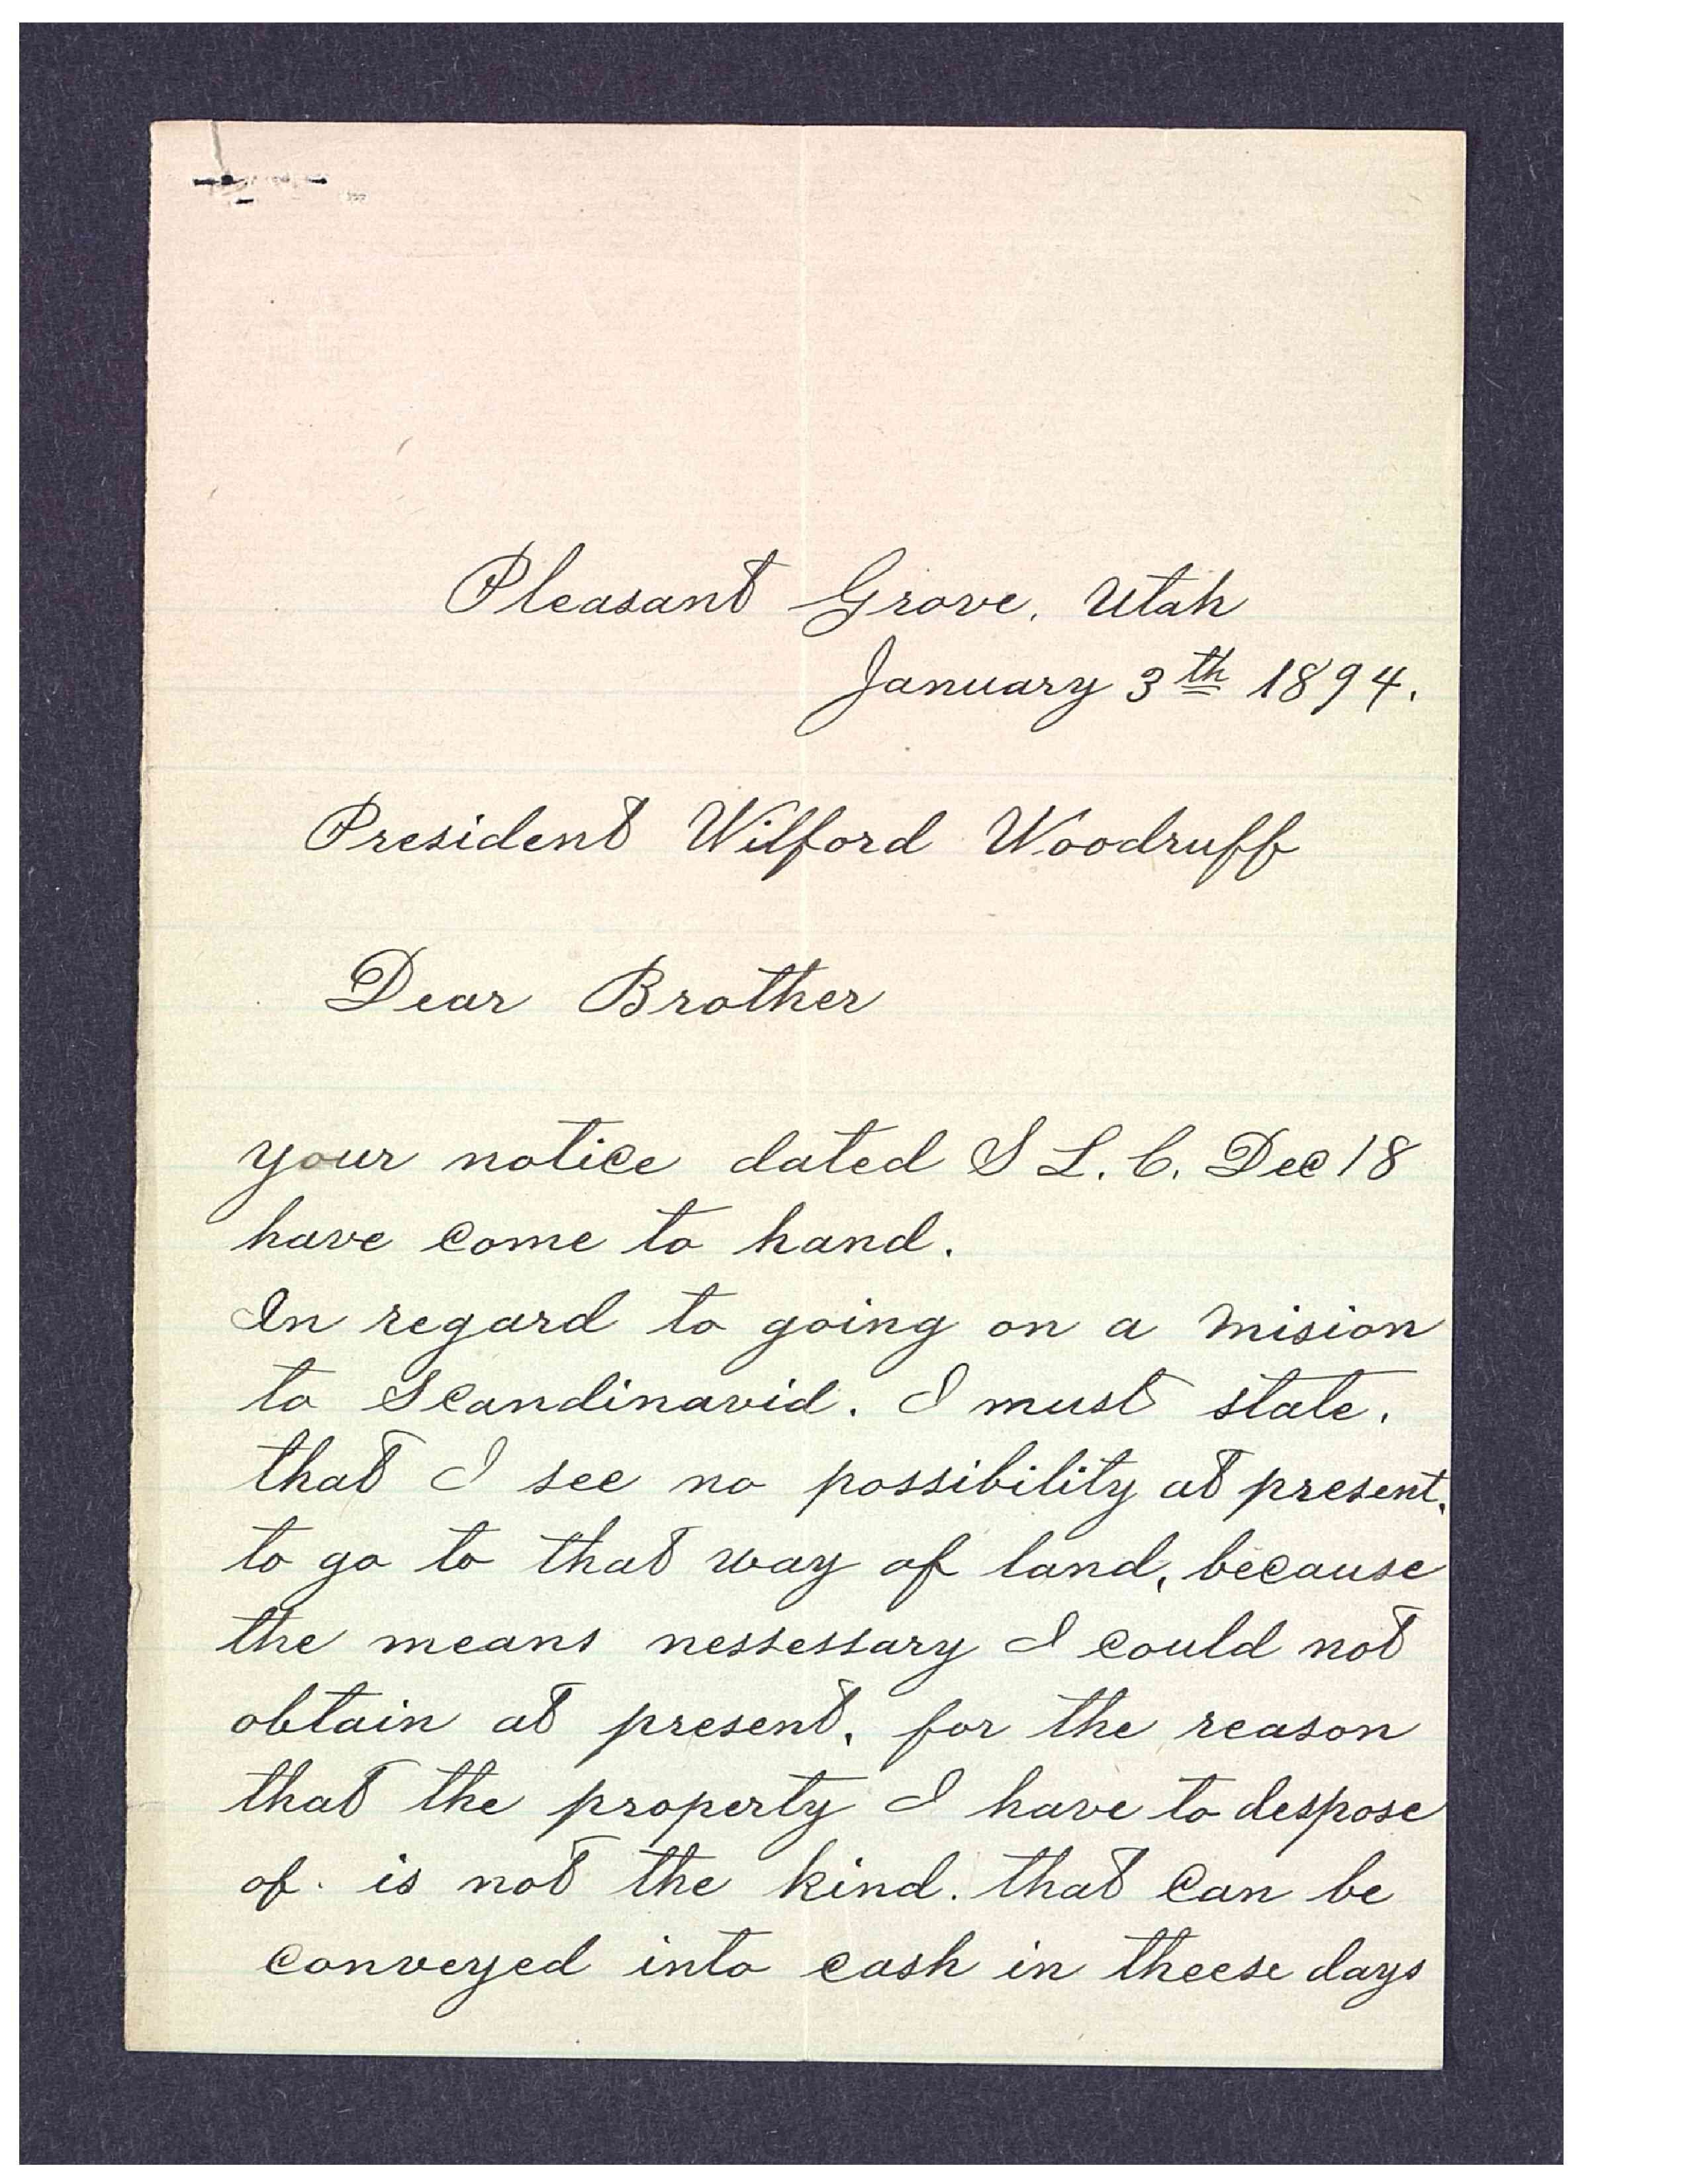 Pleasant Grove, Utah
January 3th 1894.
President Wilford Woodruff
Dear Brother
your notice dated S L. C. Dec 18
have come to hand.
In regard to going on a mision
to Scandinavid. I must state.
that I see no possibility at present.
to go to that way of land, because
the means nessessary I could not
obtain at present, for the reason
that the property I have to despose
of. is not the kind. that can be
conveyed into cash in theese days